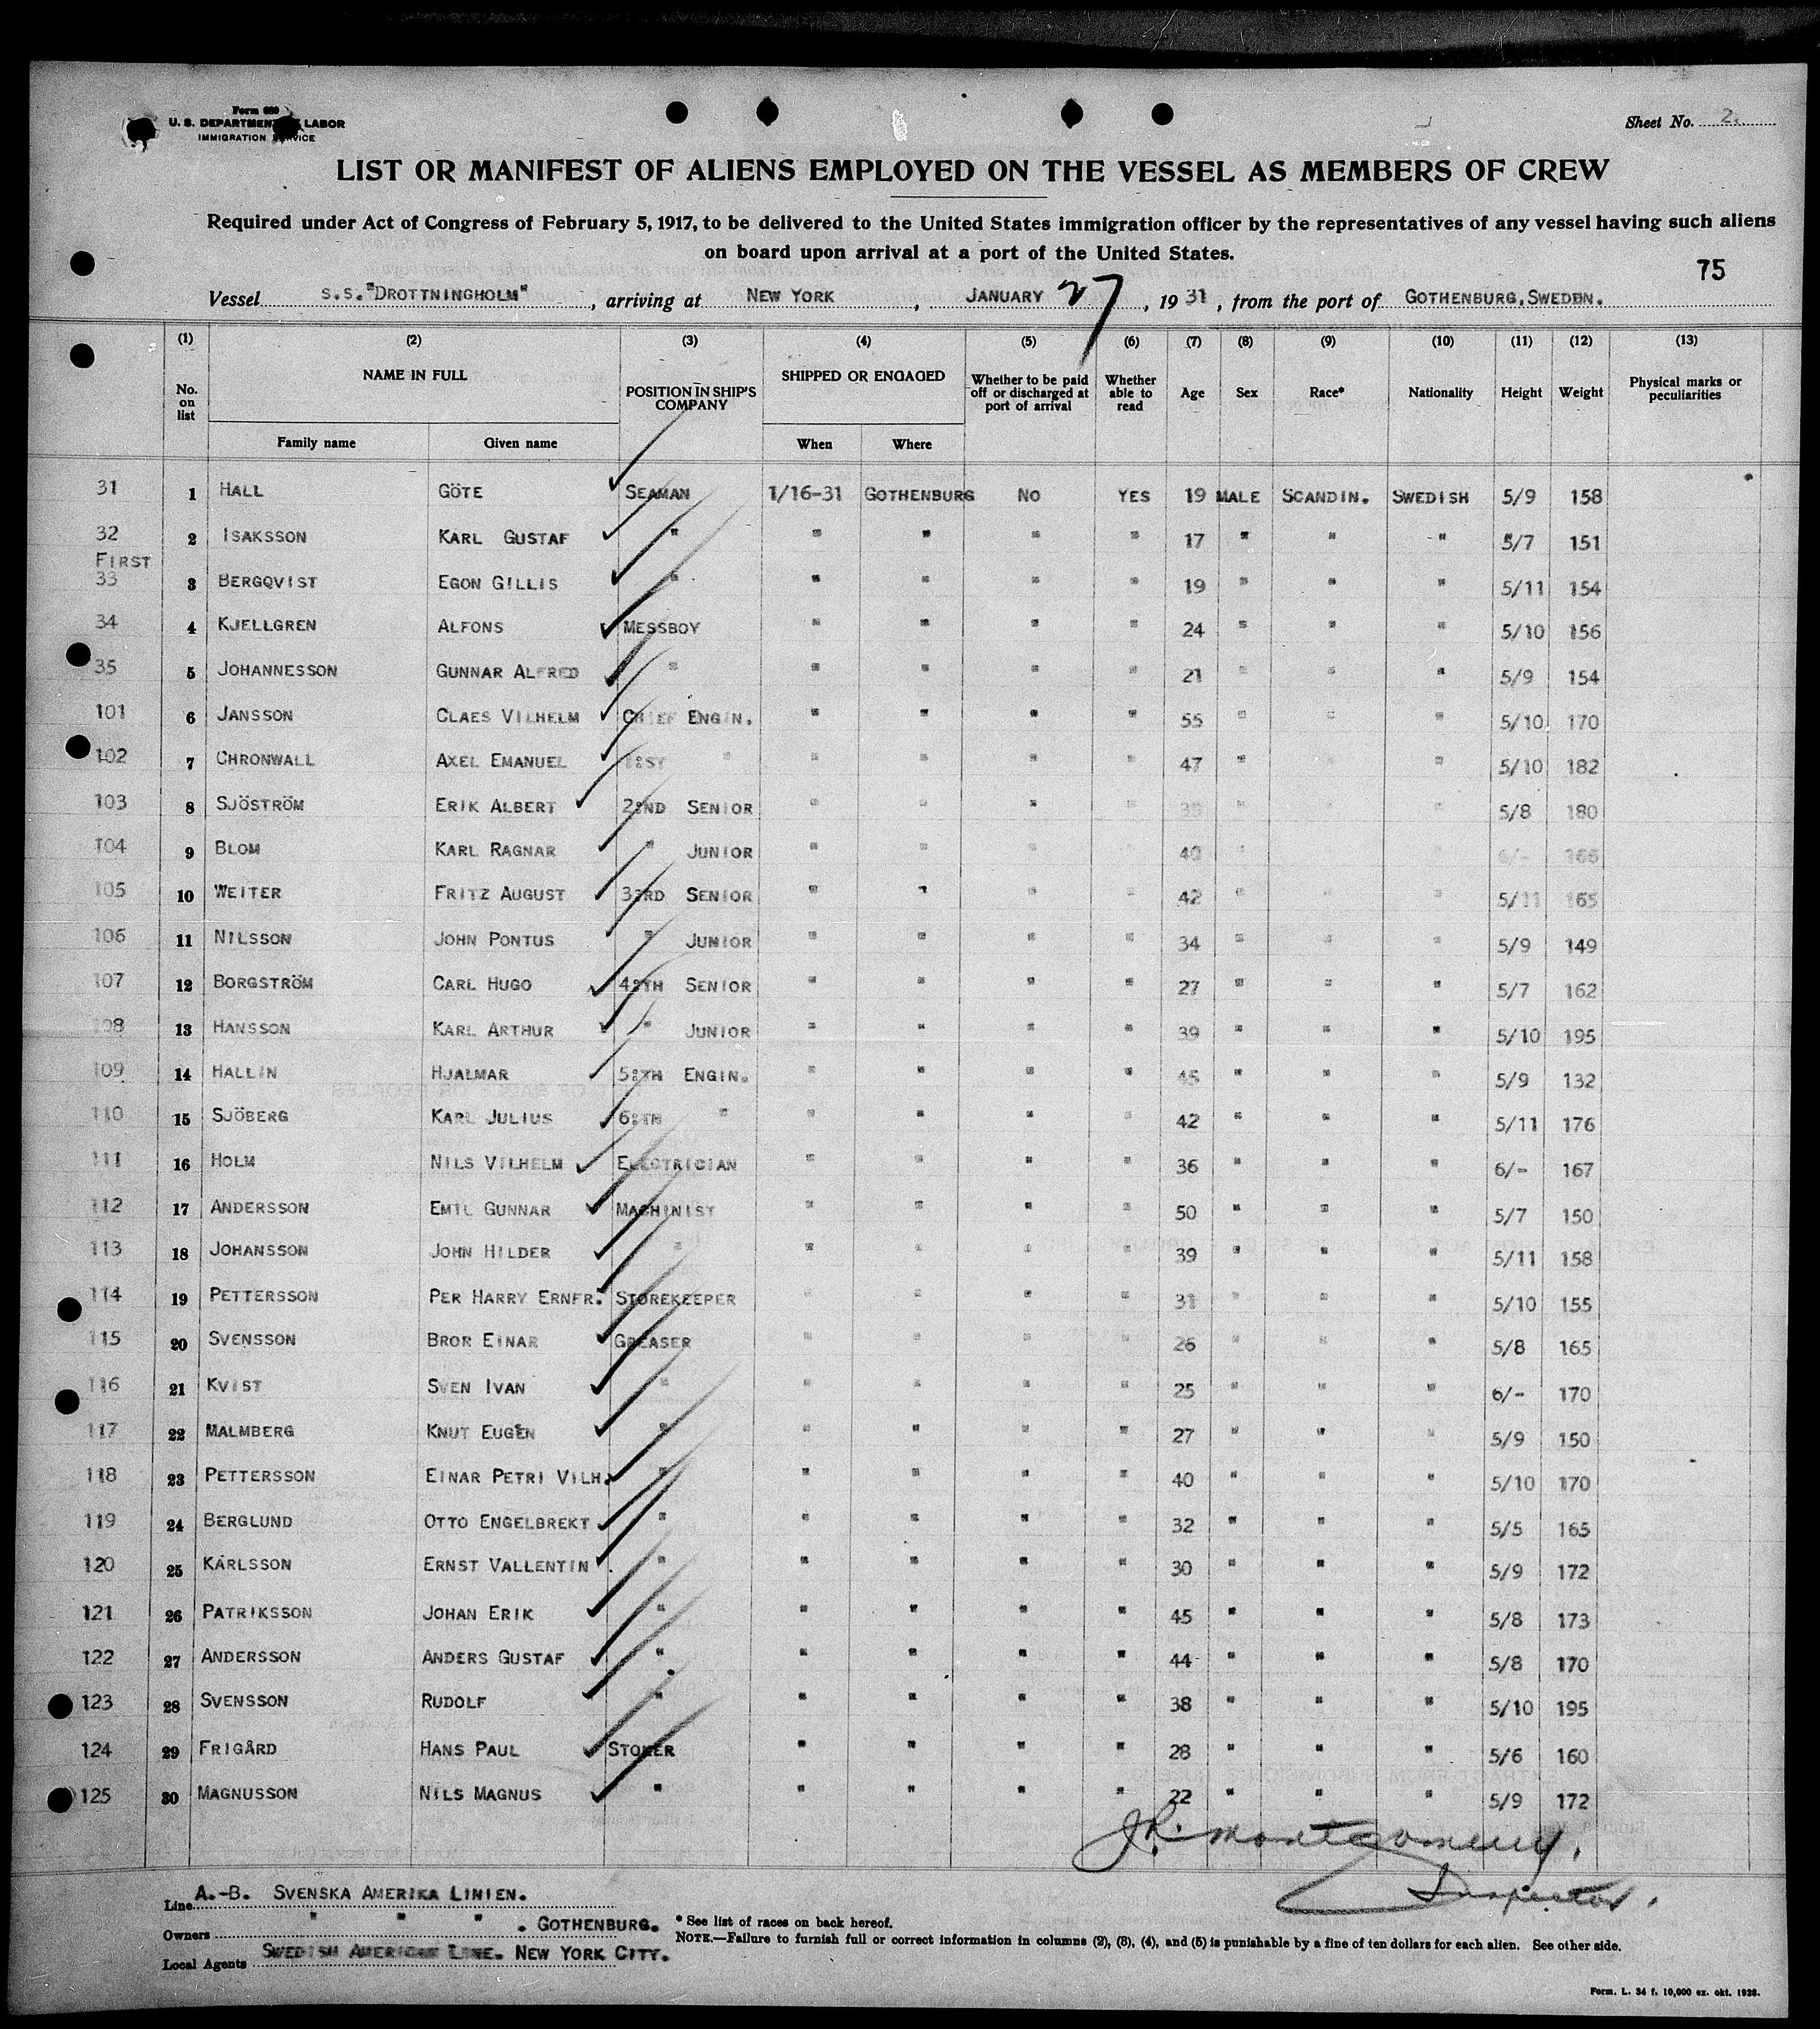 Form 680
U. S. DEPARTMENT LABOR
IMMIGRATION SERVICE
Sheet No. 2.
LIST OR MANIFEST OF ALIENS EMPLOYED ON THE VESSEL AS MEMBERS OF CREW
Required under Act of Congress of February 5, 1917, to be delivered to the United States immigration officer by the representatives of any vessel having such aliens
on board upon arrival at a port of the United States.
75
Vessel S.S. "DROTTNINGHOLM", arriving at NEW YORK, JANUARY 27, 1931, from the port of GOTHENBURG, SWEDEN.
(1) (2) (3) (4) (5) (6) (7) (8) (9) (10) (11) (12) (13)
No. on list NAME IN FULL POSITION IN SHIP'S COMPANY SHIPPED OR ENGAGED Whether to be paid off or discharged at port of arrival Whether able to read Age Sex Race* Nationality Height Weight Physical marks or peculiarities
Family name Given name When Where
31 1 HALL GÖTE SEAMAN 1/16-31 GOTHENBURG NO YES 19 MALE SCANDIN. SWEDISH 5/9 158
32 2 ISAKSSON KARL GUSTAF " " " " " 17 " " " 5/7 151
FIRST
33 3 BERGQVIST EGON GILLIS " " " " " 19 " " " 5/11 154
34 4 KJELLGREN ALFONS MESSBOY " " " " 24 " " " 5/10 156
35 5 JOHANNESSON GUNNAR ALFRED " " " " " 21 " " " 5/9 154
101 6 JANSSON CLAES VILHELM CHIEF ENGIN. " " " " 55 " " " 5/10 170
102 7 CHRONWALL AXEL EMANUEL 1:ST " " " " " 47 " " " 5/10 182
103 8 SJÖSTRÖM ERIK ALBERT 2:ND SENIOR " " " " " " " 5/8 180
104 9 BLOM KARL RAGNAR " JUNIOR " " " " 40 " 6/- 166
105 10 WEITER FRITZ AUGUST 3:RD SENIOR " " " " 42 " " " 5/11 165
106 11 NILSSON JOHN PONTUS " JUNIOR " " " " 34 " " " 5/9 149
107 12 BORGSTRÖM CARL HUGO 4:TH SENIOR " " " " 27 " " " 5/7 162
108 13 HANSSON KARL ARTHUR " JUNIOR " " " " 39 " " " 5/10 195
109 14 HALLIN HJALMAR 5:TH ENGIN. " " " " 45 " " " 5/9 132
110 15 SJÖBERG KARL JULIUS 6:TH " " " " " 42 " " " 5/11 176
111 16 HOLM NILS VILHELM ELECTRICIAN " " " " 36 " " " 6/- 167
112 17 ANDERSSON EMIL GUNNAR MACHINIST " " " " 50 " " " 5/7 150
113 18 JOHANSSON JOHN HILDER " " " " " 39 " " " 5/11 158
114 19 PETTERSSON PER HARRY ERNFR. STOREKEEPER " " " " 31 " " " 5/10 155
115 20 SVENSSON BROR EINAR GREASER " " " " 26 " " " 5/8 165
116 21 KVIST SVEN IVAN " " " " " 25 " " " 6/- 170
117 22 MALMBERG KNUT EUGEN " " " " " 27 " " " 5/9 150
118 23 PETTERSSON EINAR PETRI VILH. " " " " " 40 " " " 5/10 170
119 24 BERGLUND OTTO ENGELBREKT " " " " " 32 " " " 5/5 165
120 25 KARLSSON ERNST VALLENTIN " " " " " 30 " " " 5/9 172
121 26 PATRIKSSON JOHAN ERIK " " " " " 45 " " " 5/8 173
122 27 ANDERSSON ANDERS GUSTAF " " " " " 44 " " " 5/8 170
123 28 SVENSSON RUDOLF " " " " " 38 " " " 5/10 195
124 29 FRIGÅRD HANS PAUL STOKER " " " " 28 " " " 5/6 160
125 30 MAGNUSSON NILS MAGNUS " " " " " 22 " " " 5/9 172
J.R. Montgomery.
Inspector.
Line A.-B. SVENSKA AMERIKA LINIEN.
Owners " " " . GOTHENBURG.
Local Agents SWEDISH AMERICAN LINE. NEW YORK CITY.
* See list of races on back hereof.
NOTE.—Failure to furnish full or correct information in columns (2), (3), (4), and (5) is punishable by a fine of ten dollars for each alien. See other side.
Form. L. 34 f. 10,000 ex. okt. 1928.